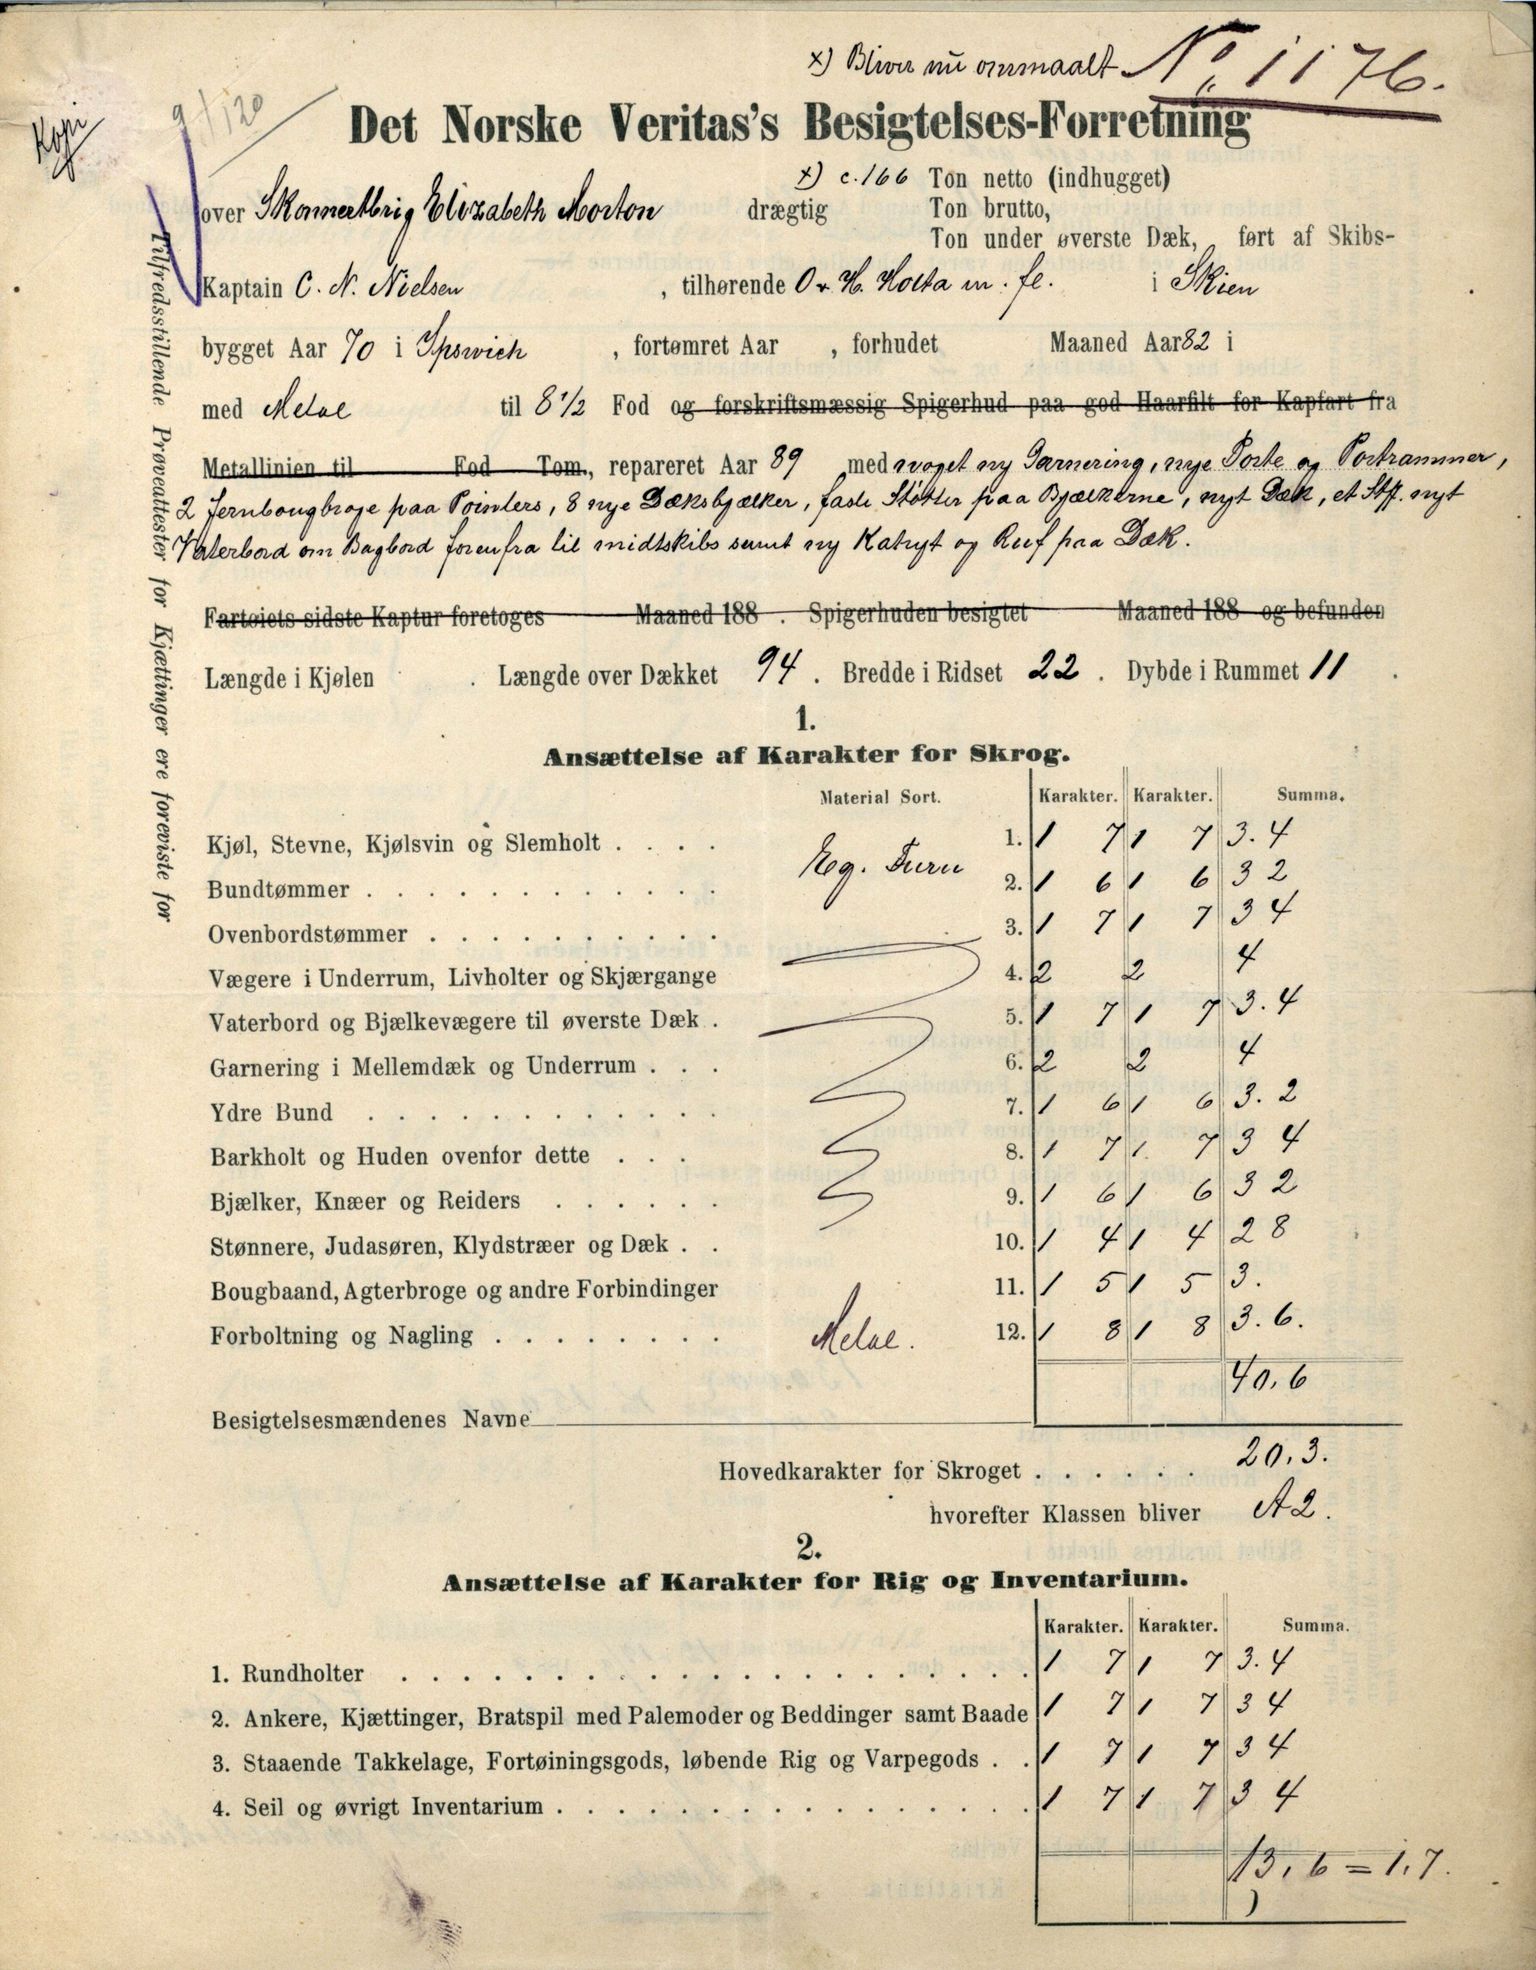 x) Bliver nu ommaalt No. 1176.
Kopi
9/120
Det Norske Veritas's Besigtelses-Forretning
x) c. 166 Ton netto (indhugget)
over Skonnertbrig Elizabeth Morton drægtig Ton brutto,
Ton under øverste Dæk, ført af Skibs-
Kaptain C. N. Nielsen , tilhørende O & H. Holta m. fl. i Skien
bygget Aar 70 i Ipswich , fortømret Aar , forhudet Maaned Aar 82 i
med Metal til 8 1/2 Fod og forskriftsmæssig Spigerhud paa god Haarfilt for Kapfart fra
Metallinien til Fod Tom., repareret Aar 89 med noget ny Garnering, nye Porte og Portrammer,
2 Jernbougbroge paa Pointers, 8 nye Dæksbjælker, faste Støtter paa Bjælkerne, nyt Dæk, et Stk. nyt
Vaterbord om Bagbord forenfra til midtskibs samt ny Kahyt og Ruf paa Dæk.
Fartøiets sidste Kaptur foretoges Maaned 188 . Spigerhuden besigtet Maaned 188 og befunden
Længde i Kjølen . Længde over Dækket 94 . Bredde i Ridset 22 . Dybde i Rummet 11 .
Tilfredsstillende Prøveattester for Kjættinger ere foreviste for
1.
Ansættelse af Karakter for Skrog.
Material Sort. Karakter. Karakter. Summa.
Kjøl, Stevne, Kjølsvin og Slemholt . . . . Eg. Furu 1. 1 7 1 7 3.4
Bundtømmer . . . . . . . . . . . . . 2. 1 6 1 6 3 2
Ovenbordstømmer . . . . . . . . . . . 3. 1 7 1 7 3 4
Vægere i Underrum, Livholter og Skjærgange 4. 2 2 4
Vaterbord og Bjælkevægere til øverste Dæk . 5. 1 7 1 7 3.4
Garnering i Mellemdæk og Underrum . . . 6. 2 2 4
Ydre Bund . . . . . . . . . . . . . 7. 1 6 1 6 3.2
Barkholt og Huden ovenfor dette . . . 8. 1 7 1. 7 3 4
Bjælker, Knæer og Reiders . . . . . . 9. 1 6 1 6 3 2
Stønnere, Judasøren, Klydstræer og Dæk . . 10. 1 4 1 4 2 8
Bougbaand, Agterbroge og andre Forbindinger 11. 1 5 1 5 3.
Forboltning og Nagling . . . . . . . . Metal. 12. 1 8 1 8 3.6.
40,6
Besigtelsesmændenes Navne
Hovedkarakter for Skroget . . . . . . 20,3.
hvorefter Klassen bliver A2.
2.
Ansættelse af Karakter for Rig og Inventarium.
Karakter. Karakter. Summa.
1. Rundholter . . . . . . . . . . . . . . . . . . . . 1 7 1 7 3.4
2. Ankere, Kjættinger, Bratspil med Palemoder og Beddinger samt Baade 1 7 1 7 3 4
3. Staaende Takkelage, Fortøiningsgods, løbende Rig og Varpegods . . 1 7 1 7 3 4
4. Seil og øvrigt Inventarium . . . . . . . . . . . . . . . 1 7 1 7 3 4
13,6 = 1,7.